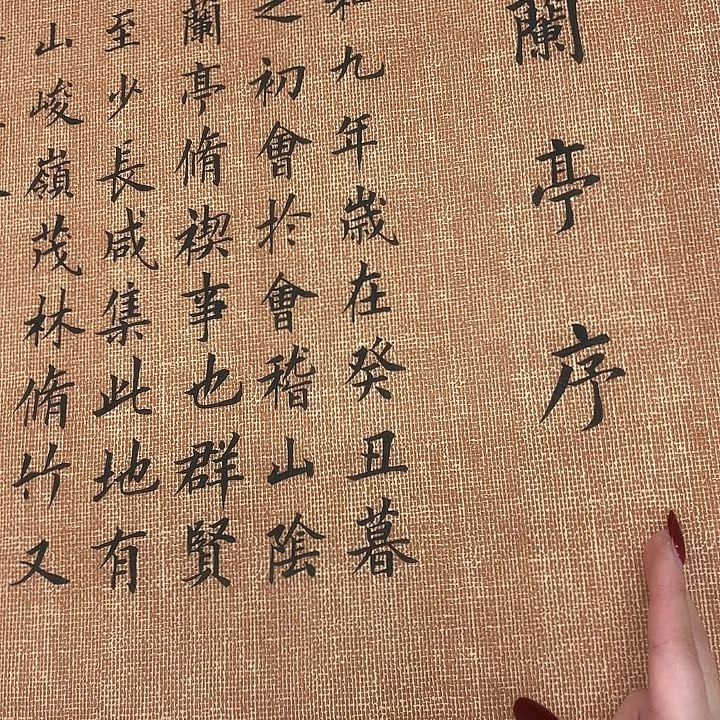 蘭亭序
和九年歲在癸丑暮
之初會於會稽山陰
蘭亭脩禊事也群賢
至少長咸集此地有
山峻嶺茂林脩竹又